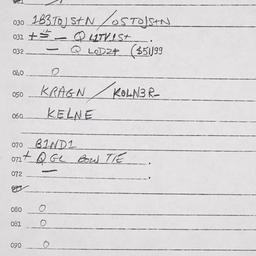 030 1B3TOJS+N / OSTOJS+N
031 +S — Q LITVIST .
032 — Q LODZ+ ($51)99
040 O
050 KRAGN / KOLN3R
060 KELNE
070 B1ND1
071 + Q GL BOW TIE .
072 — .
080 O
081 O
090 O